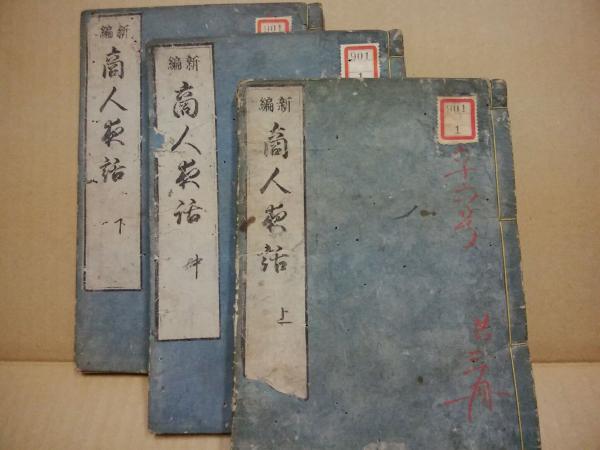 新編
商人夜話
下
901
新編
商人夜話
中
901
1
新編
商人夜話
上
901
1
十六号
共三冊